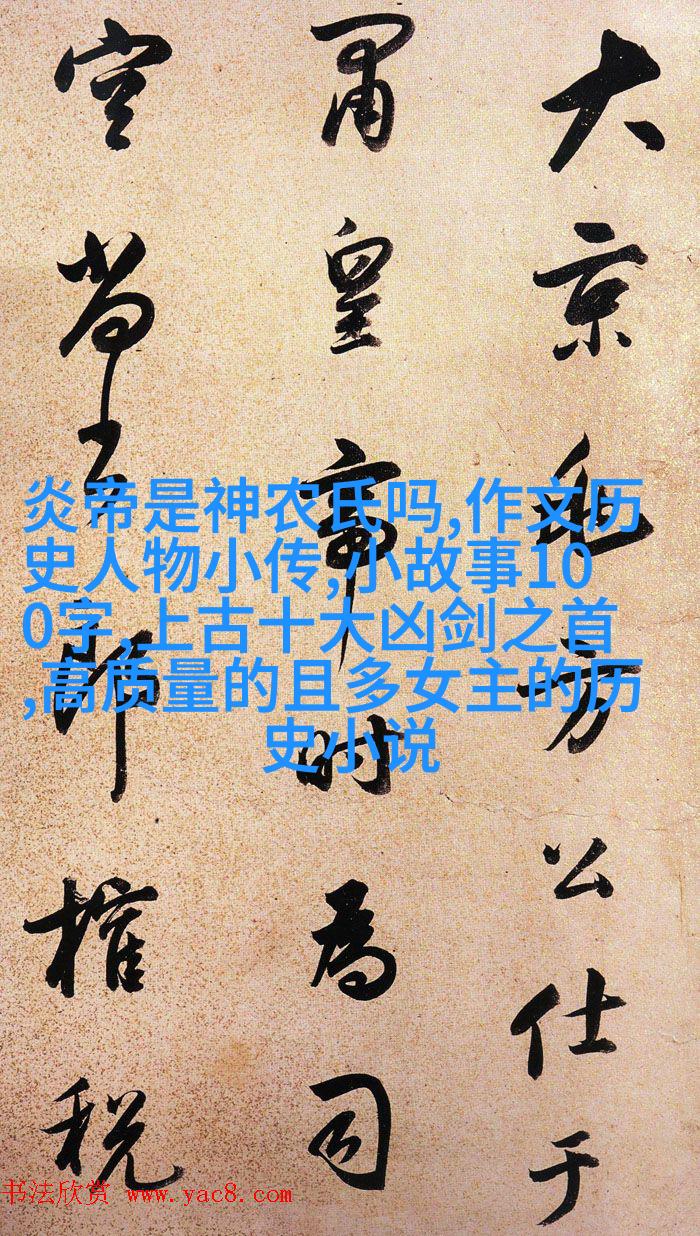 大京兆方公仕于
肅皇帝时为司
空师榷税
炎帝是神农氏吗,作文历
史人物小传,小故事10
0字,上古十大凶剑之首
,高质量的且多女主的历
史小说
书法欣赏 www.yac8.com